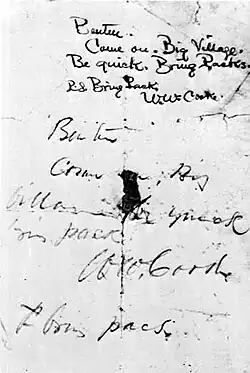 Benteen.
Come on. Big Village.
Be quick. Bring Packs.
P.S. Bring Packs.
W.W. Cooke
Benteen
Come on. Big
Village be quick
bring packs
W.W. Cooke
P bring pacs.